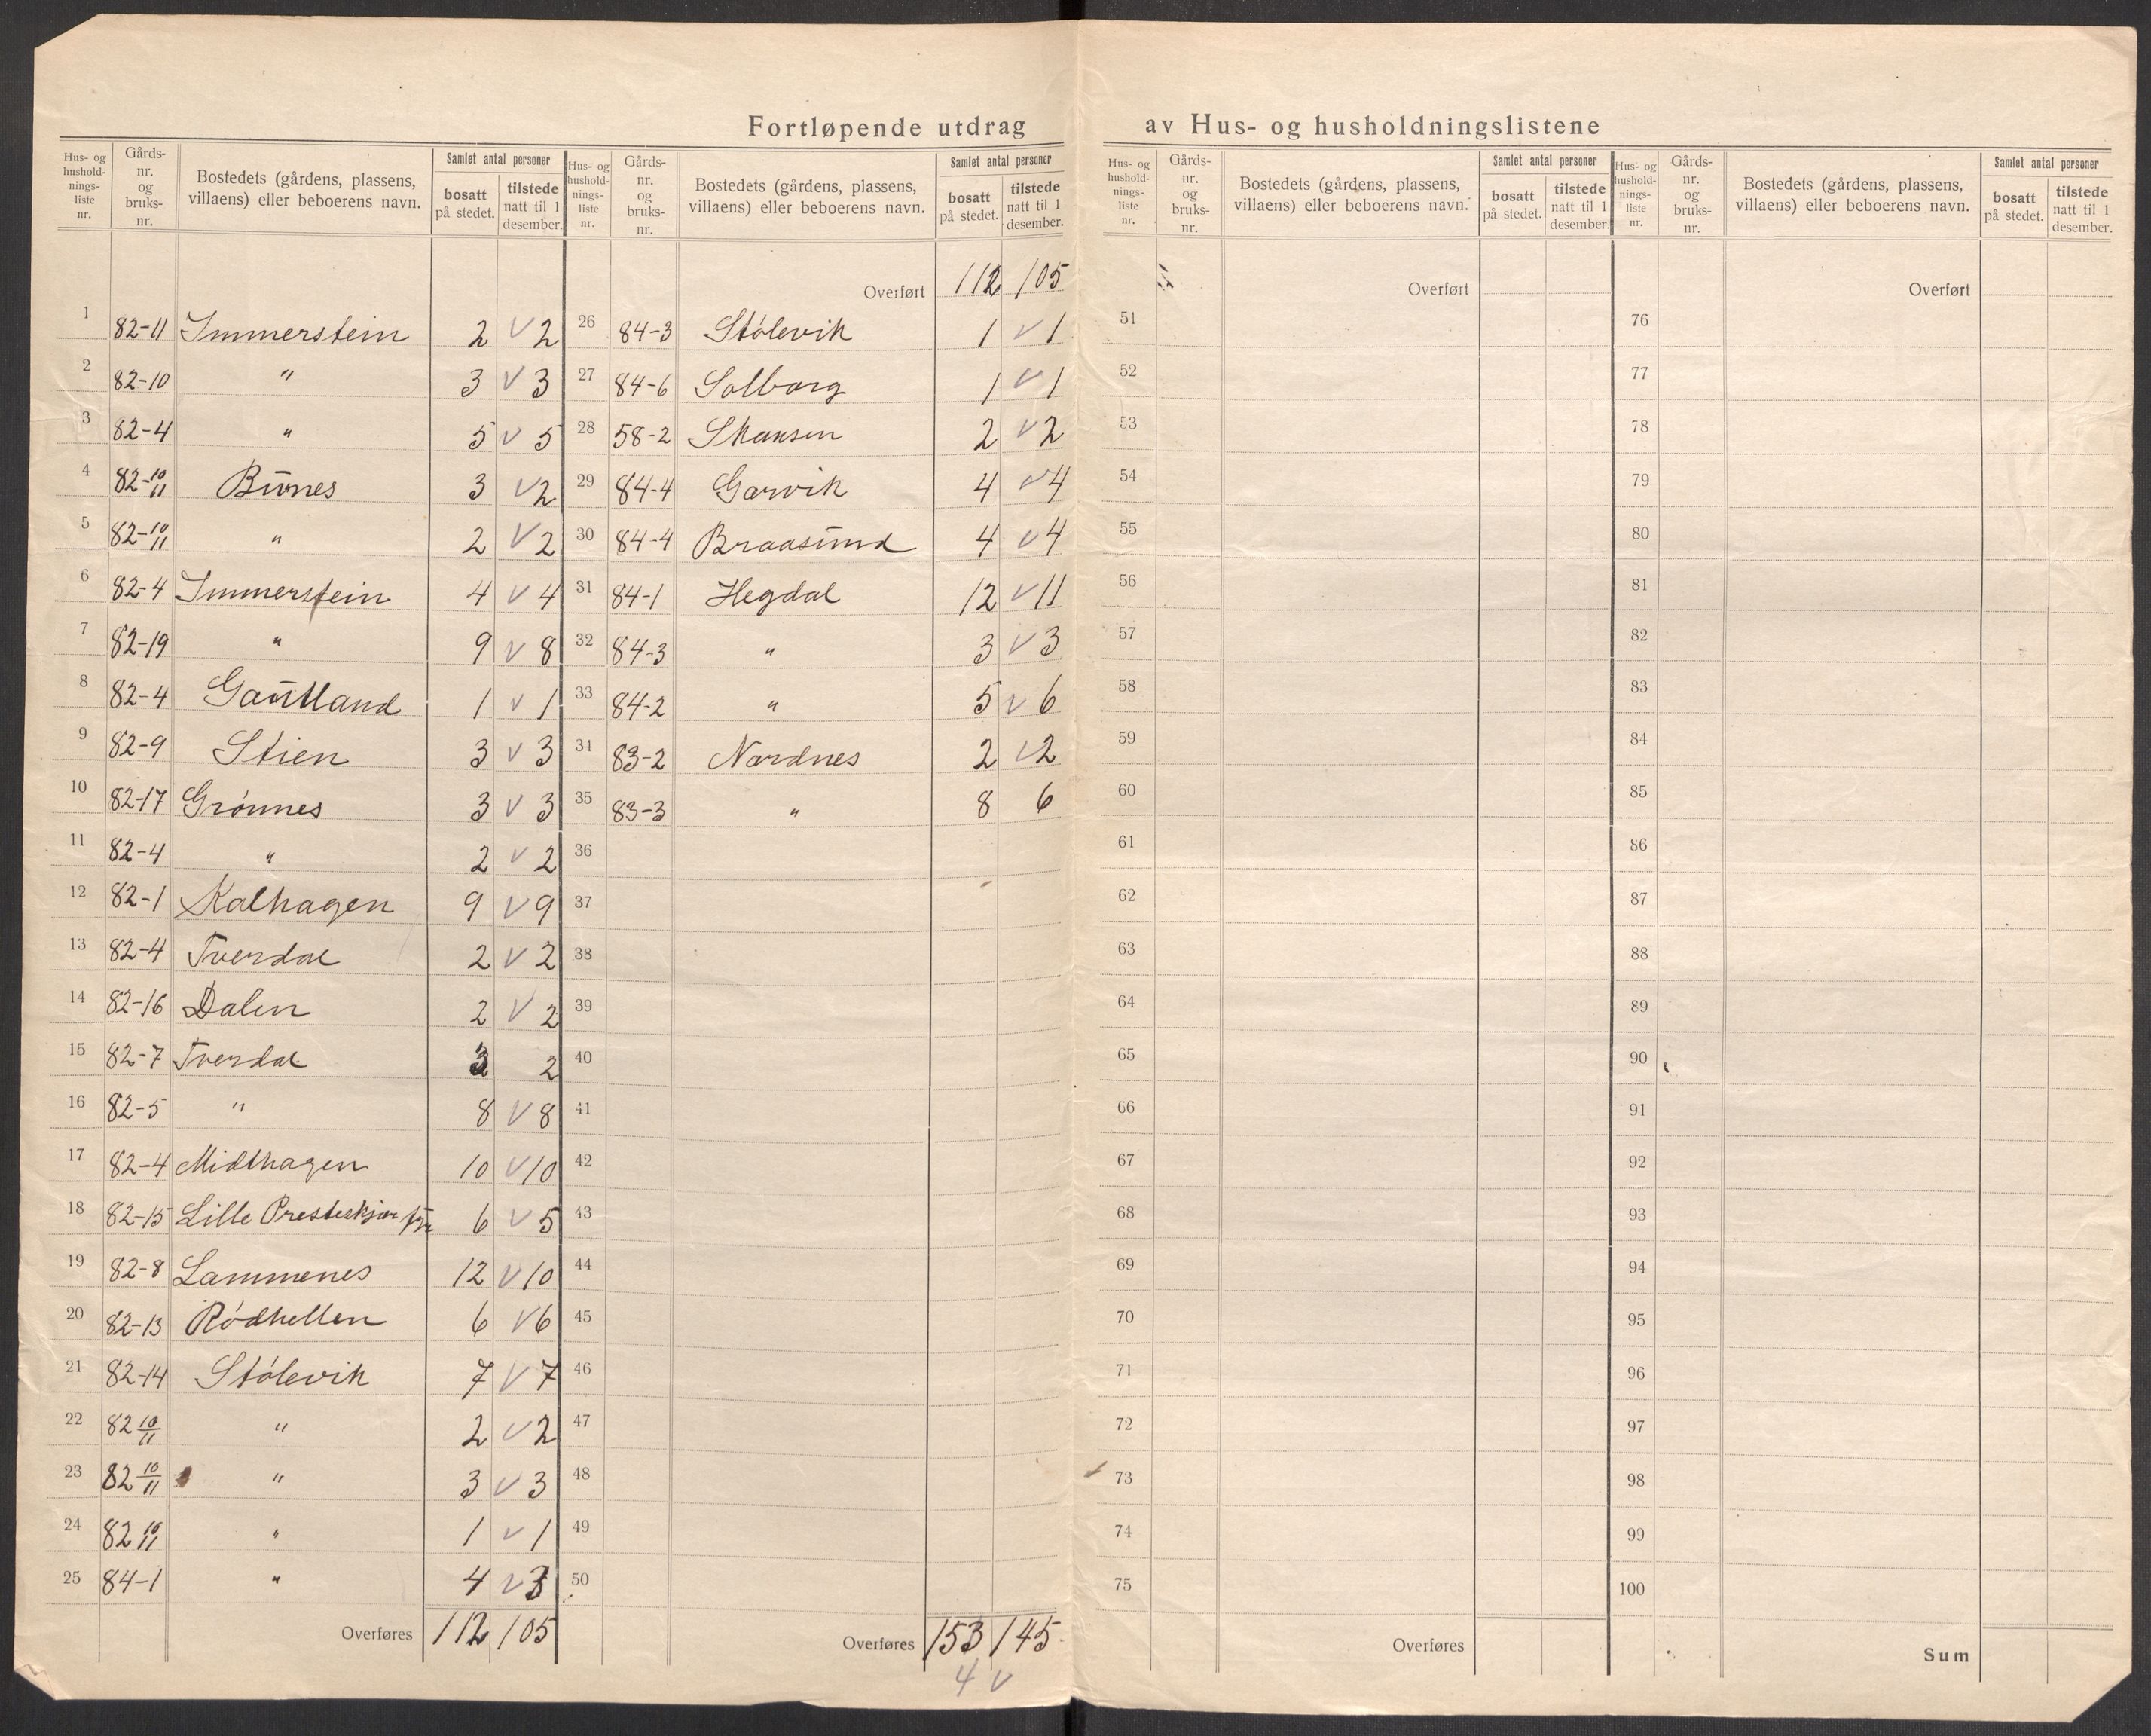 Fortløpende utdrag av Hus- og husholdningslistene
Hus- og hushold-nings-liste nr. Gårds-nr. og bruks-nr. Bostedets (gårdens, plassens, villaens) eller beboerens navn. Samlet antal personer bosatt på stedet. tilstede natt til 1 desember.
1 82-11 Immerstein 2 V 2
2 82-10 " 3 V 3
3 82-4 " 5 V 5
4 82-10/11 Būnes 3 V 2
5 82-10/11 " 2 V 2
6 82-4 Immerstein 4 V 4
7 82-19 " 9 V 8
8 82-4 1 V 1
9 82-9 Stien 3 V 3
10 82-17 Grónnes 3 V 3
11 82-4 " 2 V 2
12 82-1 Kalhagen 9 V 9
13 82-4 Tverdal 2 V 2
14 82-16 Dalen 2 V 2
15 82-7 Tverdal 3 2
16 82-5 " 8 V 8
17 82-4 Midthagen 10 V 10
18 82-15 Lille Presteskjær fyr 6 V 5
19 82-8 Lammenes 12 V 10
20 82-13 Ródhellen 6 V 6
21 82-14 Stólevik 7 V 7
22 82 10/11 " 2 V 2
23 82 10/11 " 3 V 3
24 82 10/11 " 1 V 1
25 84-1 " 4 V 3
Overføres 112 105
Hus- og hushold-nings-liste nr. Gårds-nr. og bruks-nr. Bostedets (gårdens, plassens, villaens) eller beboerens navn. Samlet antal personer bosatt på stedet. tilstede natt til 1 desember.
Overført 112 105
26 84-3 Stólevik 1 V 1
27 84-6 Solborg 1 V 1
28 58-2 Skansen 2 V 2
29 84-4 Garvik 4 V 4
30 84-4 Braasūnd 4 V 4
31 84-1 Hegdal 12 V 11
32 84-3 " 3 V 3
33 84-2 " 5 V 6
34 83-2 Nordnes 2 V 2
35 83-3 " 8 6
36
37
38
39
40
41
42
43
44
45
46
47
48
49
50
Overføres 153 145
4 V
Hus- og hushold-nings-liste nr. Gårds-nr. og bruks-nr. Bostedets (gårdens, plassens, villaens) eller beboerens navn. Samlet antal personer bosatt på stedet. tilstede natt til 1 desember.
Overført
51
52
53
54
55
56
57
58
59
60
61
62
63
64
65
66
67
68
69
70
71
72
73
74
75
Overføres
Hus- og hushold-nings-liste nr. Gårds-nr. og bruks-nr. Bostedets (gårdens, plassens, villaens) eller beboerens navn. Samlet antal personer bosatt på stedet. tilstede natt til 1 desember.
Overført
76
77
78
79
80
81
82
83
84
85
86
87
88
89
90
91
92
93
94
95
96
97
98
99
100
Sum